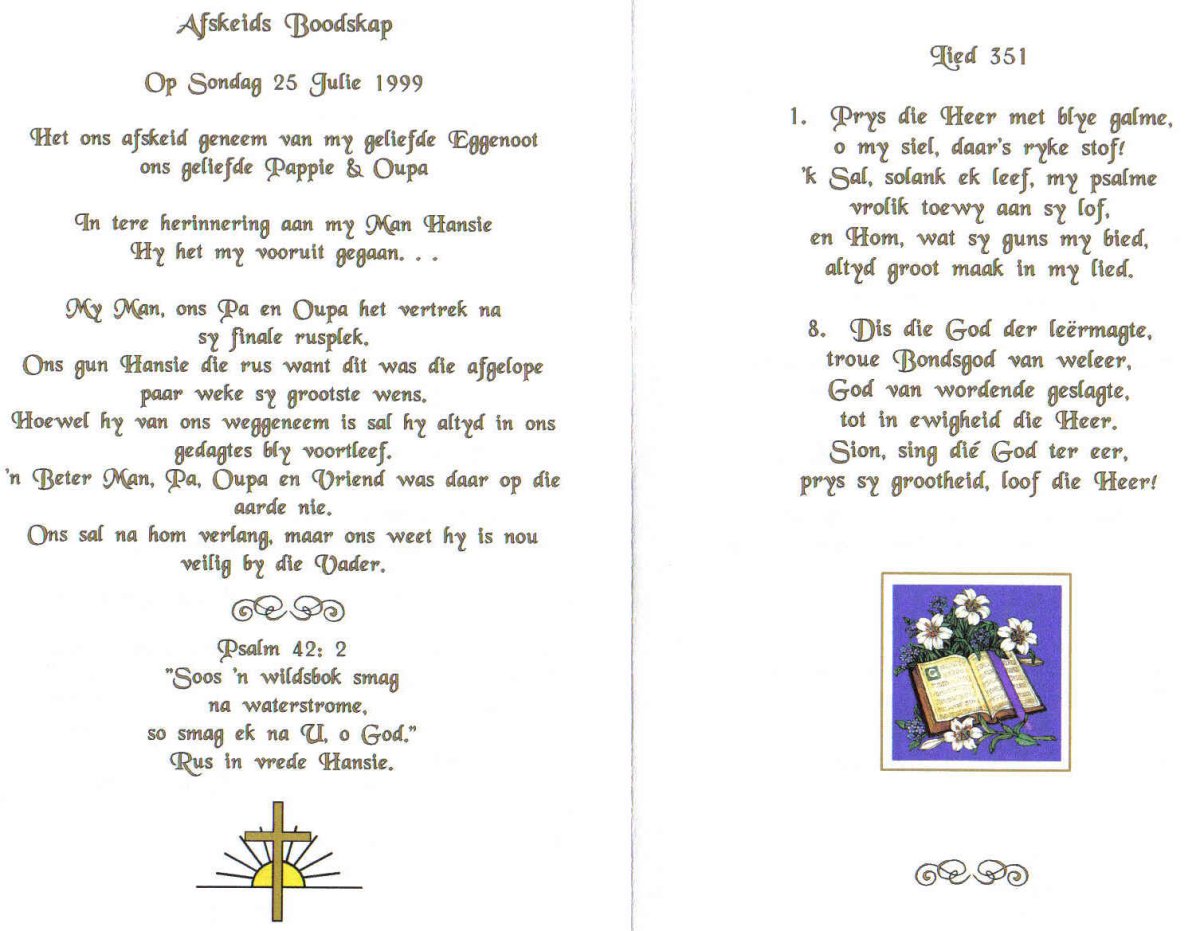 Afskeids Boodskap
Op Sondag 25 Julie 1999
Het ons afskeid geneem van my geliefde Eggenoot
ons geliefde Pappie & Oupa
In tere herinnering aan my Man Hansie
Hy het my vooruit gegaan. . .
My Man, ons Pa en Oupa het vertrek na
sy finale rusplek.
Ons gun Hansie die rus want dit was die afgelope
paar weke sy grootste wens.
Hoewel hy van ons weggeneem is sal hy altyd in ons
gedagtes bly voortleef.
'n Beter Man, Pa, Oupa en Vriend was daar op die
aarde nie.
Ons sal na hom verlang, maar ons weet hy is nou
veilig by die Vader.
Psalm 42: 2
"Soos 'n wildsbok smag
na waterstrome,
so smag ek na U, o God."
Rus in vrede Hansie.
Lied 351
1. Prys die Heer met blye galme,
o my siel, daar's ryke stof!
'k Sal, solank ek leef, my psalme
vrolik toewy aan sy lof,
en Hom, wat sy guns my bied,
altyd groot maak in my lied.
8. Dis die God der leërmagte,
troue Bondsgod van weleer,
God van wordende geslagte,
tot in ewigheid die Heer.
Sion, sing dié God ter eer,
prys sy grootheid, loof die Heer!